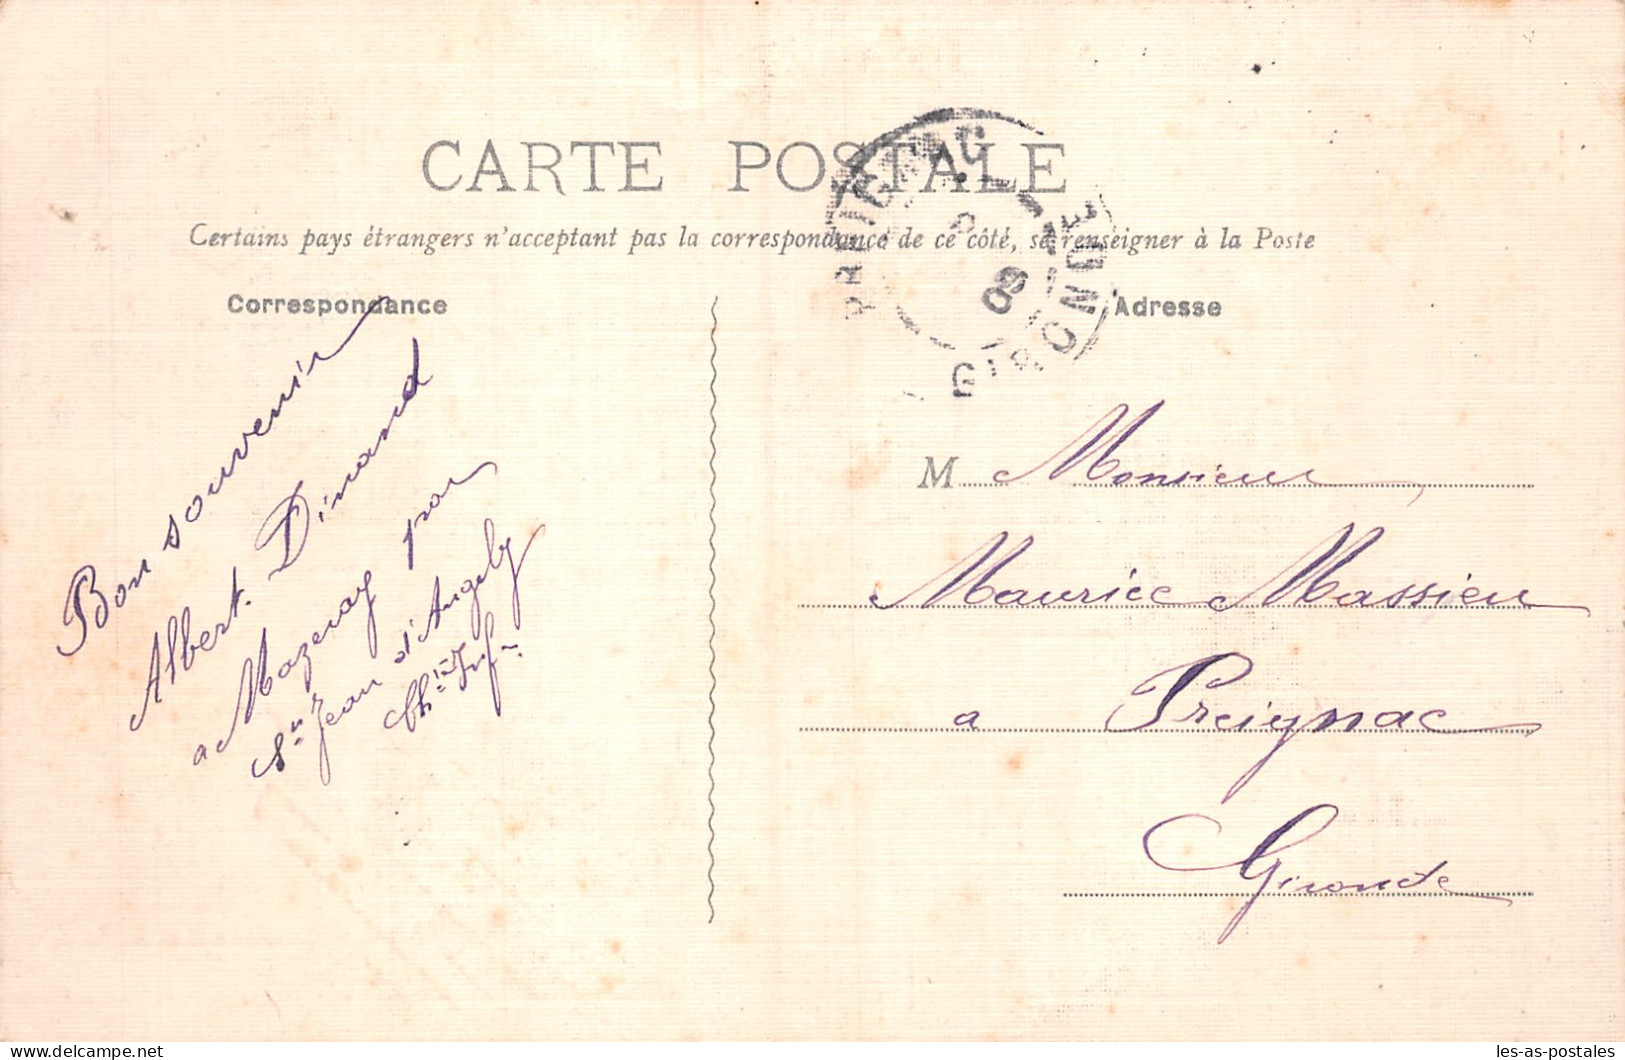 CARTE POSTALE
Certains pays étrangers n'acceptant pas la correspondance de ce côté, se renseigner à la Poste
Correspondance
Adresse
PREIGNAC
08
GIRONDE
Bon souvenir
Albert. Dinand
a Mazeray par
Sn Jean d'Angely
Chte Infre
M Monsieur
Maurice Massieu
a Preignac
Gironde
www.delcampe.net
les-as-postales